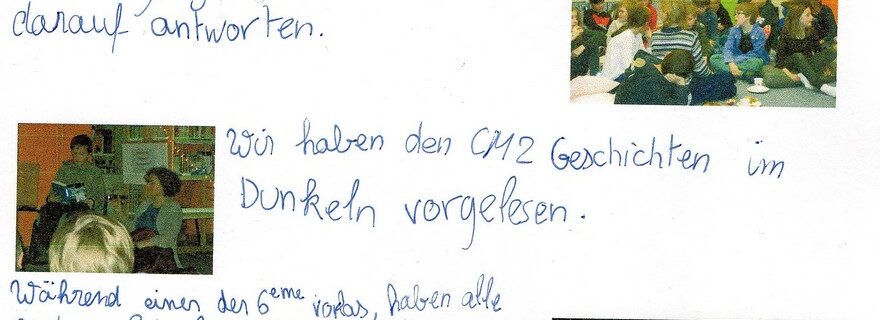 darauf antworten.
Wir haben den CM2 Geschichten im
Dunkeln vorgelesen.
Während einer der 6eme vorlas, haben alle